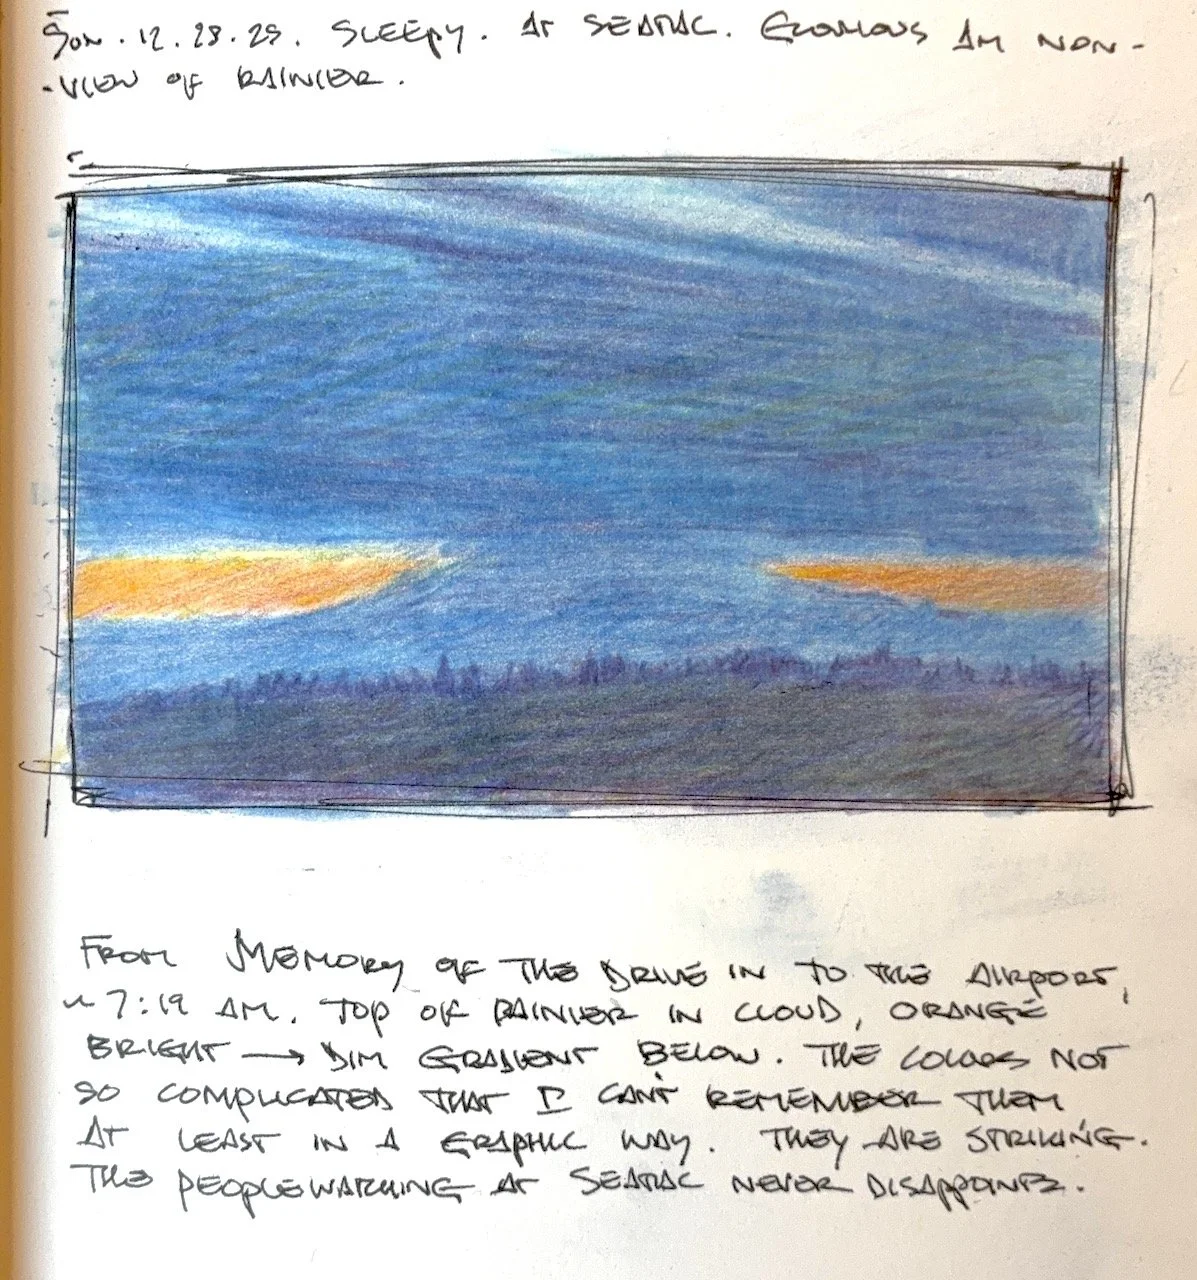 SUN. 12.28.25. SLEEPY. AT SEATAC. GLORIOUS AM NON-
-VIEW OF RAINIER.
FROM MEMORY OF THE DRIVE IN TO THE AIRPORT,
~ 7:19 AM. TOP OF RAINIER IN CLOUD, ORANGE
BRIGHT → DIM GRADIENT BELOW. THE COLORS NOT
SO COMPLICATED THAT I CAN'T REMEMBER THEM
AT LEAST IN A GRAPHIC WAY. THEY ARE STRIKING.
THE PEOPLEWATCHING AT SEATAC NEVER DISAPPOINTS.